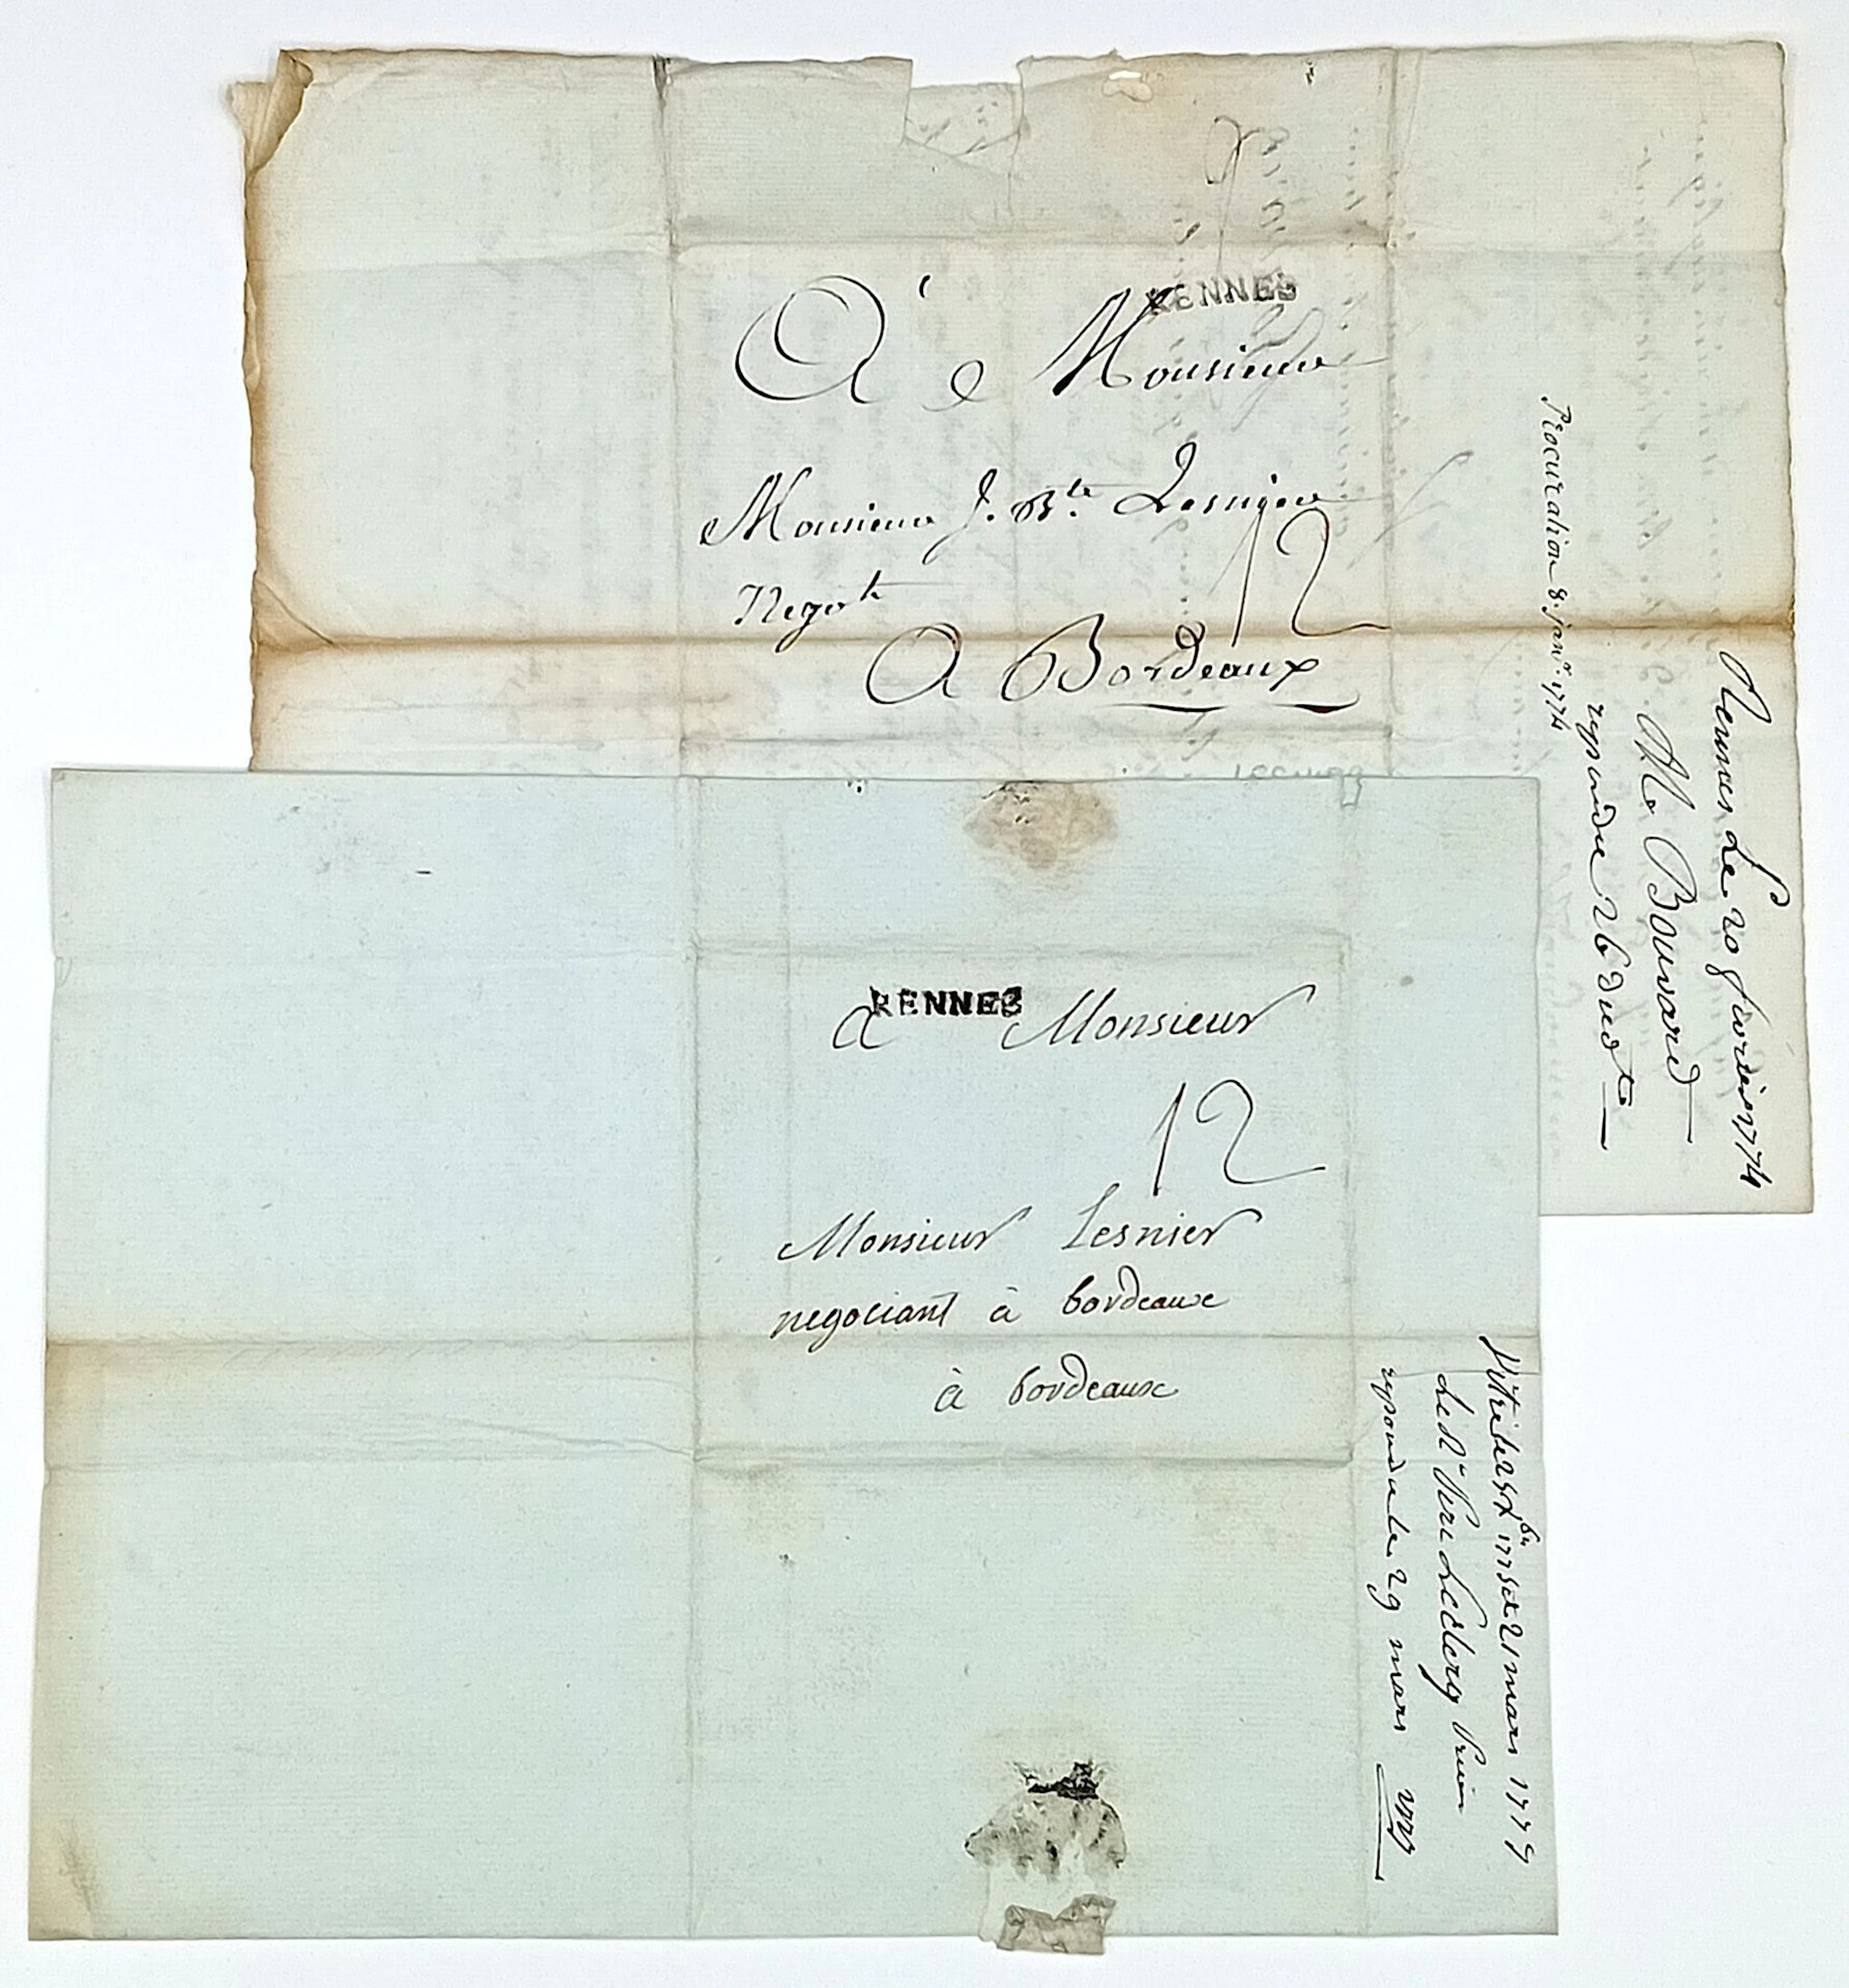 RENNES
A Monsieur
Monsieur J. Bte. Lesnier
Negot
A Bordeaux
12
Rennes Le 20 fevrier 1774
M. Bouvard
repondu 26 dud
Procuration 8. janr. 1774
RENNES
a Monsieur
12
Monsieur Lesnier
negociant à bordeaux
à bordeaux
Vitré le 21 mars 1779
Le Sr
repondu le 29 mars